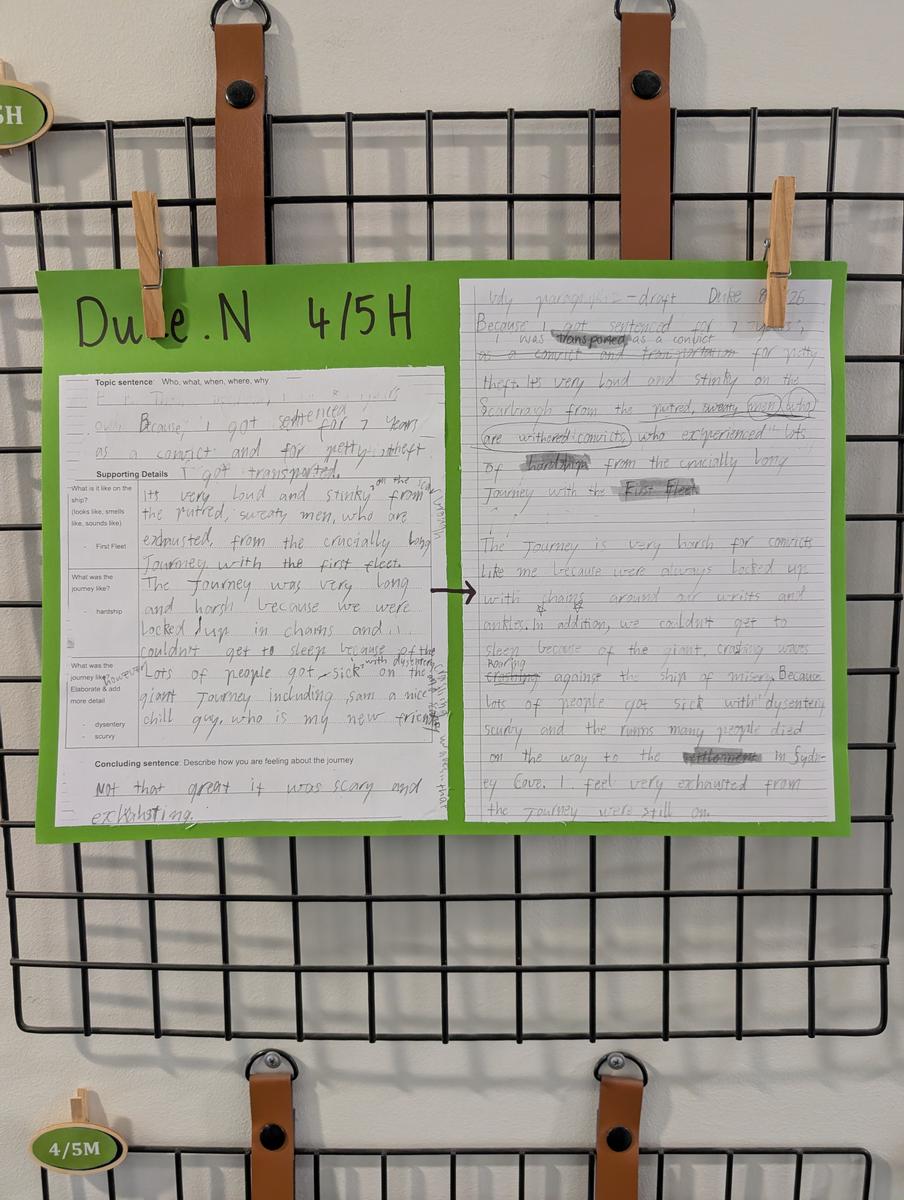 5H
Duke.N 4/5H
Topic sentence: Who, what, when, where, why
years
Because, I got sentenced for 7 years
as a convict and for petty theft
I got transported.
Supporting Details
What is it like on the ship?
(looks like, smells like, sounds like)
- First Fleet
Its very loud and stinky on the from
the putred, sweaty men, who are
exhausted, from the crucially long
Journey with the first fleet.
What was the journey like?
- hardship
The Journey was very long
and harsh because we were
locked up in chains and
couldn't get to sleep because of the
What was the journey like?
Elaborate & add more detail
- dysentery
- scurvy
however
Lots of people got sick with dysentery on the
giant Journey including, sam a nice
chill guy, who is my new friend
Concluding sentence: Describe how you are feeling about the journey
Not that great it was scary and
exhausting.
paragraph - draft Duke 26
Because I got sentenced for 7 years,
I was transported as a convict
as a convict and transportation for petty
theft. Its very loud and stinky on the
Scarbrough from the putred, sweaty men who
are withered convicts who experienced lots
of hardship from the crucially long
Journey with the First Fleet
The Journey is very harsh for convicts
like me because were always locked up
with chains around our wrists and
ankles. In addition, we couldn't get to
sleep because of the giant, crashing waves
Roaring
Crashing against the ship of misery. Because
lots of people got sick with dysentery
scurvy and the runns many people died
on the way to the settlement in Sydn-
ey Cove. I feel very exhausted from
the Journey were still on
4/5M